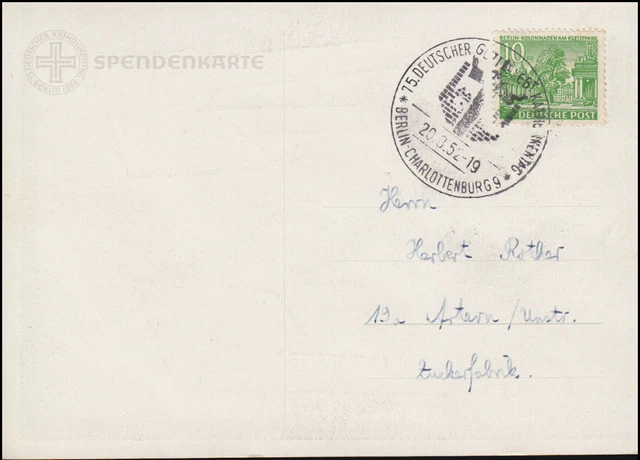 SPENDENKARTE
BERLIN-KOLONNADEN AM KLEISTPARK
10
DEUTSCHE POST
75. DEUTSCHER KATHOLIKENTAG
20.8.52-19
* BERLIN-CHARLOTTENBURG 9 *
Herrn
Herbert Rother
19a Artern/Unstr.
Zuckerfabrik.